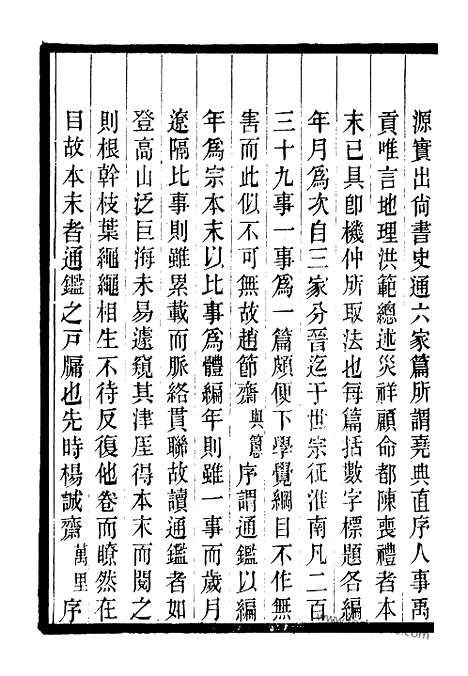 源實出尙書史通六家篇所謂堯典直序人事禹
貢唯言地理洪範總述災祥顧命都陳喪禮者本
末已具卽機仲所取法也每篇括數字標題各編
年月爲次自三家分晉迄于世宗征淮南凡二百
三十九事一事爲一篇頗便下學覺綱目不作無
害而此似不可無故趙節齋與𥲅序謂通鑑以編
年爲宗本末以比事爲體編年則雖一事而歲月
遼隔比事則雖累載而脈絡貫聯故讀通鑑者如
登高山泛巨海未易遽窺其津厓得本末而閱之
則根幹枝葉繩繩相生不待反復他卷而瞭然在
目故本末者通鑑之戸牖也先時楊誠齋萬里序